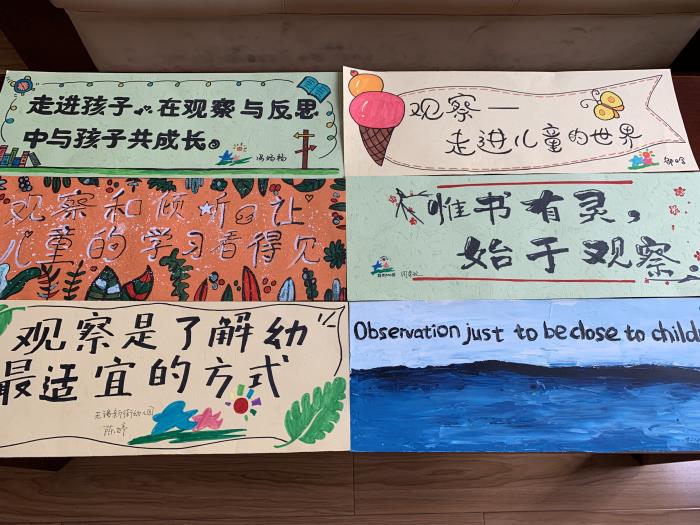 走进孩子，在观察与反思
中与孩子共成长。
观察—
走进儿童的世界
观察和倾听让
儿童的学习看得见
惟书有灵，
始于观察
观察是了解幼
最适宜的方式
老诸新街幼儿园
陈婷
Observation just to be close to childr